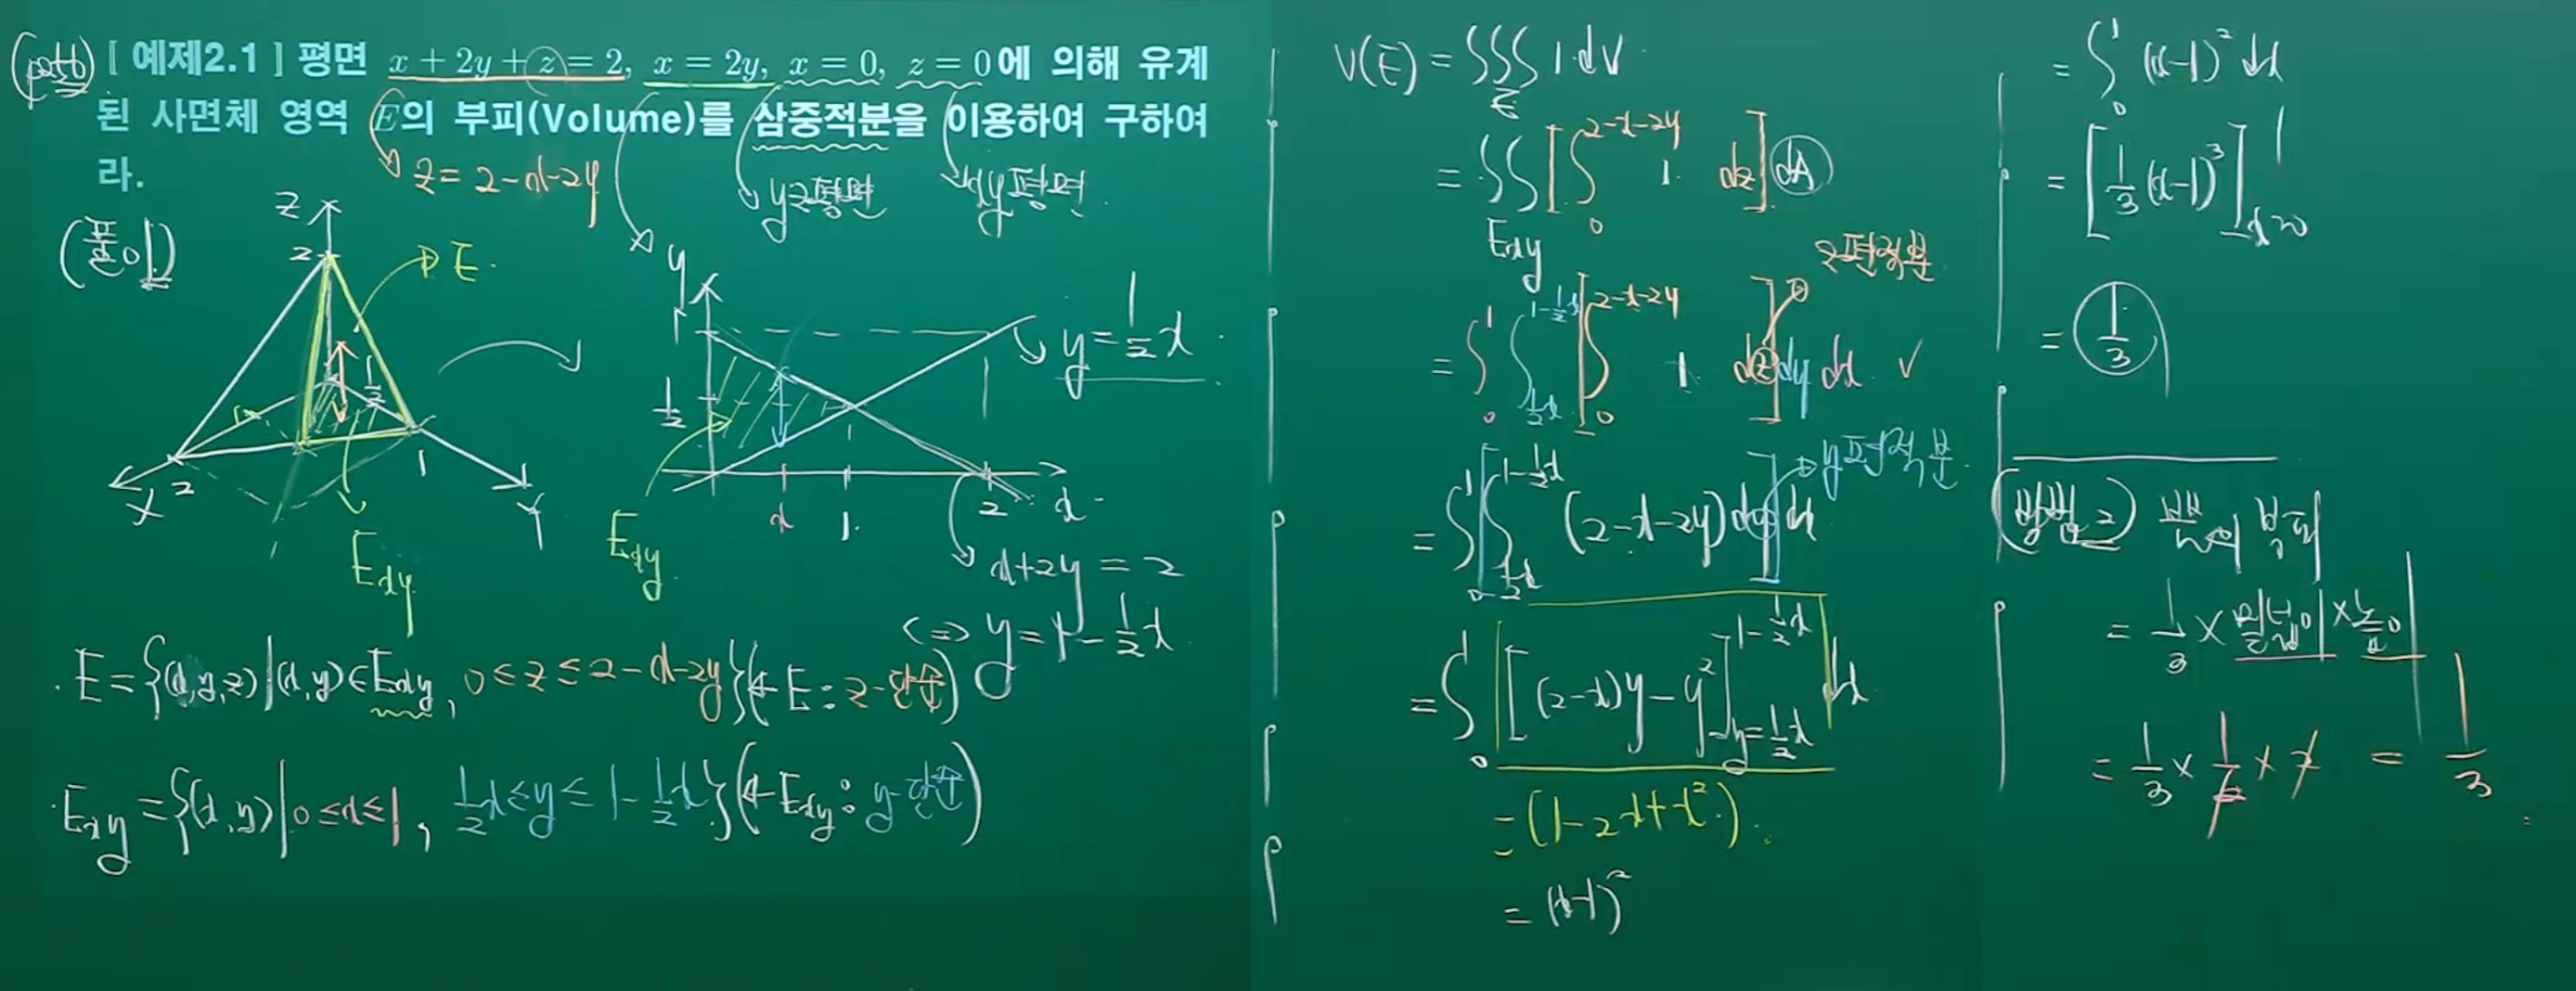 [ 예제2.1 ] 평면 x + 2y + z = 2, x = 2y, x = 0, z = 0에 의해 유계
된 사면체 영역 E의 부피(Volume)를 삼중적분을 이용하여 구하여
라.
z = 2-x-2y
yz평면
xy평면
(풀이)
z
2
E
1/2
1
2
x
y
E_xy
y
1
1/2
y = 1/2 x
x
1
2
x
E_xy
x+2y = 2
<=> y = 1 - 1/2 x
E = {(x,y,z) | (x,y) ∈ E_xy, 0 ≤ z ≤ 2-x-2y} (← E : z-단순)
E_xy = {(x,y) | 0 ≤ x ≤ 1, 1/2 x ≤ y ≤ 1 - 1/2 x} (← E_xy : y-단순)
V(E) = ∭_E 1 dV
= ∬_E_xy [ ∫_0^{2-x-2y} 1 dz ] dA
z편적분
= ∫_0^1 ∫_{1/2 x}^{1-1/2 x} [ ∫_0^{2-x-2y} 1 dz ] dy dx
y편적분
= ∫_0^1 [ ∫_{1/2 x}^{1-1/2 x} (2-x-2y) dy ] dx
= ∫_0^1 [ (2-x)y - y² ]_{y=1/2 x}^{1-1/2 x} dx
= (1-2x+x²)
= (x-1)²
= ∫_0^1 (x-1)² dx
= [ 1/3 (x-1)³ ]_{x=0}^1
= 1/3
(방법2) 뿔의 부피
= 1/3 × 밑넓이 × 높이
= 1/3 × 1/2 × 2 = 1/3